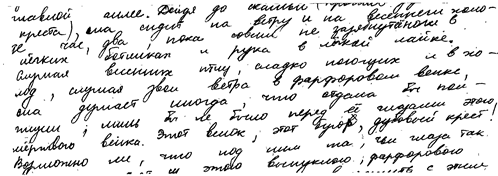 главной аллее. Дойдя до скамьи
креста), она сидит на ветру и на весеннем холо-
де час, два, пока совсем не зазябнут ноги в
легких ботинках и рука в лайке.
Слушая весенних птиц, сладко поющих и в хо-
лод, слушая звон ветра в фарфоровом венке,
она думает иногда, что отдала бы пол-
жизни, лишь бы не было перед ее глазами этого
мертвого венка. Этот венок, этот бугор, дубовый крест!
Возможно ли, что под ним та, чьи глаза так
этого выпуклого фарфорового